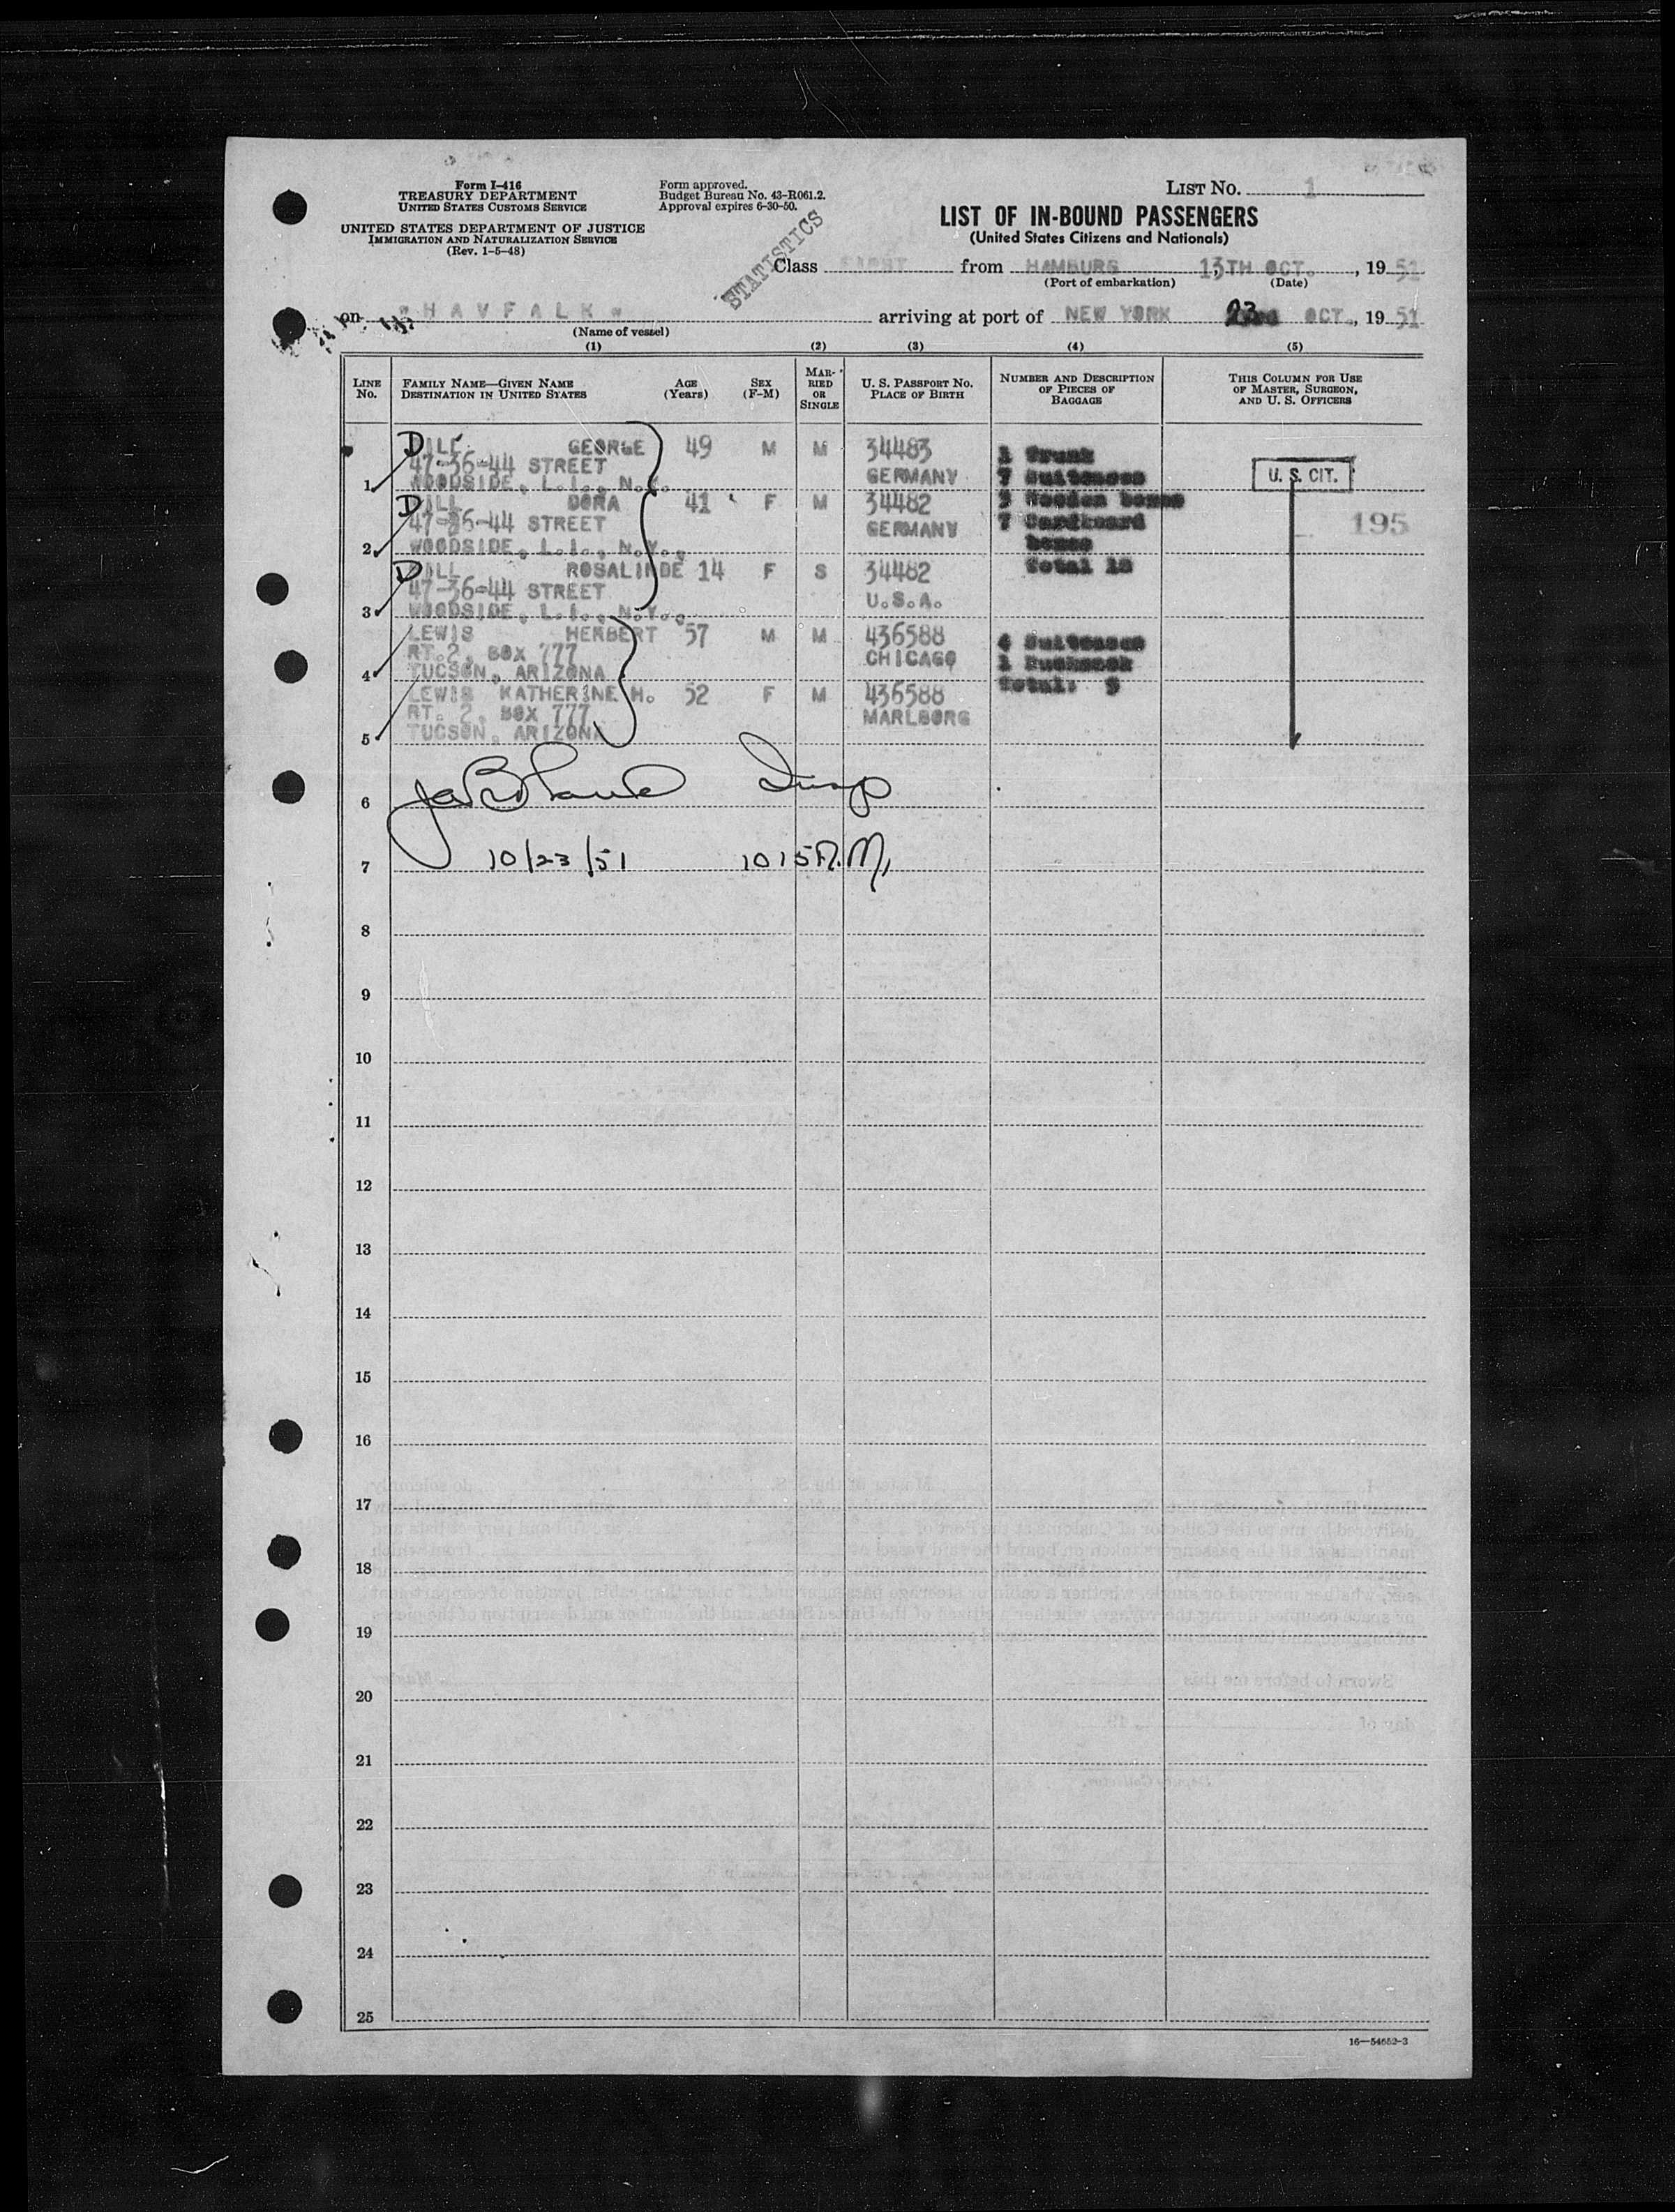 Form I-416
TREASURY DEPARTMENT
UNITED STATES CUSTOMS SERVICE
UNITED STATES DEPARTMENT OF JUSTICE
IMMIGRATION AND NATURALIZATION SERVICE
(Rev. 1-5-48)
Form approved.
Budget Bureau No. 43-R061.2.
Approval expires 6-30-50.
STATISTICS
LIST NO. 1
LIST OF IN-BOUND PASSENGERS
(United States Citizens and Nationals)
Class FIRST from HAMBURG 13TH OCT., 1951
(Port of embarkation) (Date)
on "HAVFALK" arriving at port of NEW YORK 23 OCT., 1951
(Name of vessel)
(1) (2) (3) (4) (5)
LINE NO. FAMILY NAME—GIVEN NAME DESTINATION IN UNITED STATES AGE (Years) SEX (F-M) MARRIED OR SINGLE U. S. PASSPORT NO. PLACE OF BIRTH NUMBER AND DESCRIPTION OF PIECES OF BAGGAGE THIS COLUMN FOR USE OF MASTER, SURGEON, AND U. S. OFFICERS
DILL GEORGE 49 M M 34483 1 Trunk
47-36-44 STREET
1 WOODSIDE, L.I., N.Y. GERMANY 7 Suitcases U. S. CIT.
DILL DORA 41 F M 34482 3 Wooden boxes
47-36-44 STREET GERMANY 7 Cardboard 195
2 WOODSIDE, L.I., N.Y., boxes
DILL ROSALINDE 14 F S 34482 Total 18
47-36-44 STREET
3 WOODSIDE, L.I., N.Y., U.S.A.
LEWIS HERBERT 57 M M 436588 4 Suitcases
RT.2, BOX 777 CHICAGO 1 Rucksack
4 TUCSON, ARIZONA Total: 5
LEWIS KATHERINE H. 52 F M 436588
RT. 2, BOX 777 MARLBORG
5 TUCSON, ARIZONA
6 Insp
7 10/23/51 1015 A.M,
8
9
10
11
12
13
14
15
16
17
18
19
20
21
22
23
24
25
16—54652-3